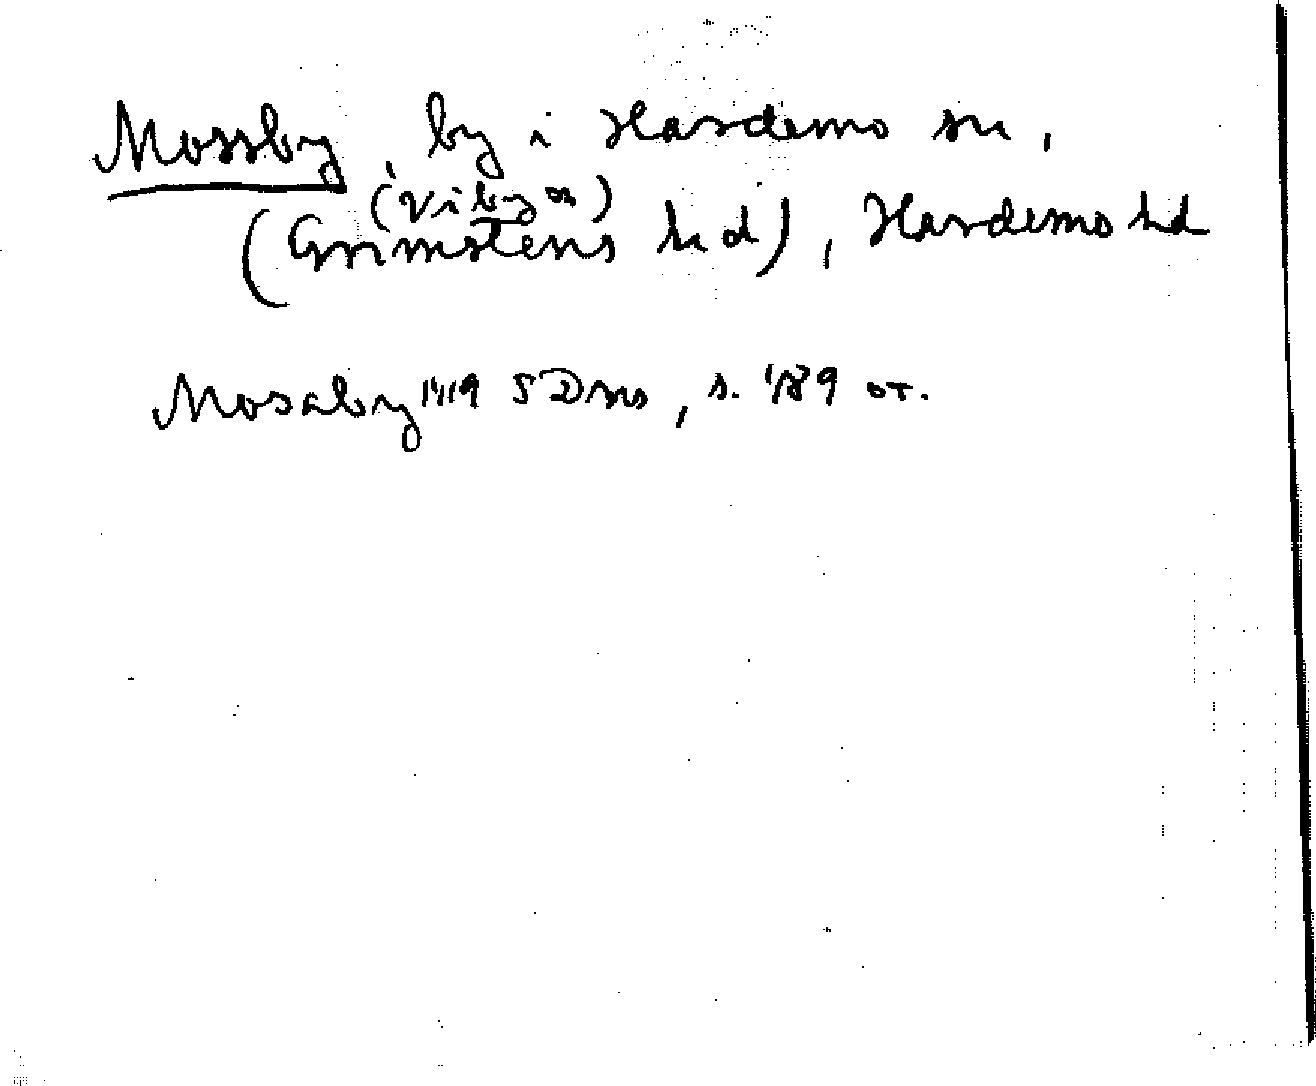 Mossby, by i Hardemo sn,
(Viby sn)
(Grimstens hd), Hardemo hd
Mosaby 1419 SDns, s. 489 or.